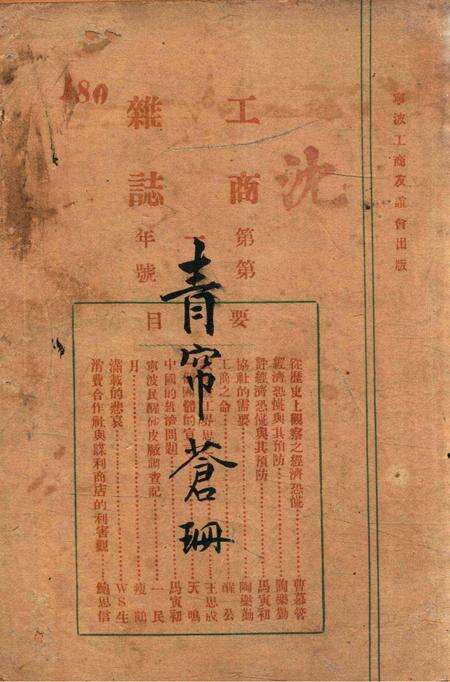 寧波工商友誼會出版
沈
工商
雜誌
第 第
年 號
要
目
180
青帘蒼珊
從歷史上觀察之經濟恐慌 曹慕管
經濟恐慌與其預防 陶樂勤
評經濟恐慌與其預防 馬寅初
協社的需要 陶樂勤
工商之命 醒公
王思成
天鳴
中國的經濟問題 馬寅初
寧波民醒假皮廠調查記 一民
月 瘦鶴
滿載的悲哀 WS生
消費合作社與謀利商店的利害觀 鮑思信